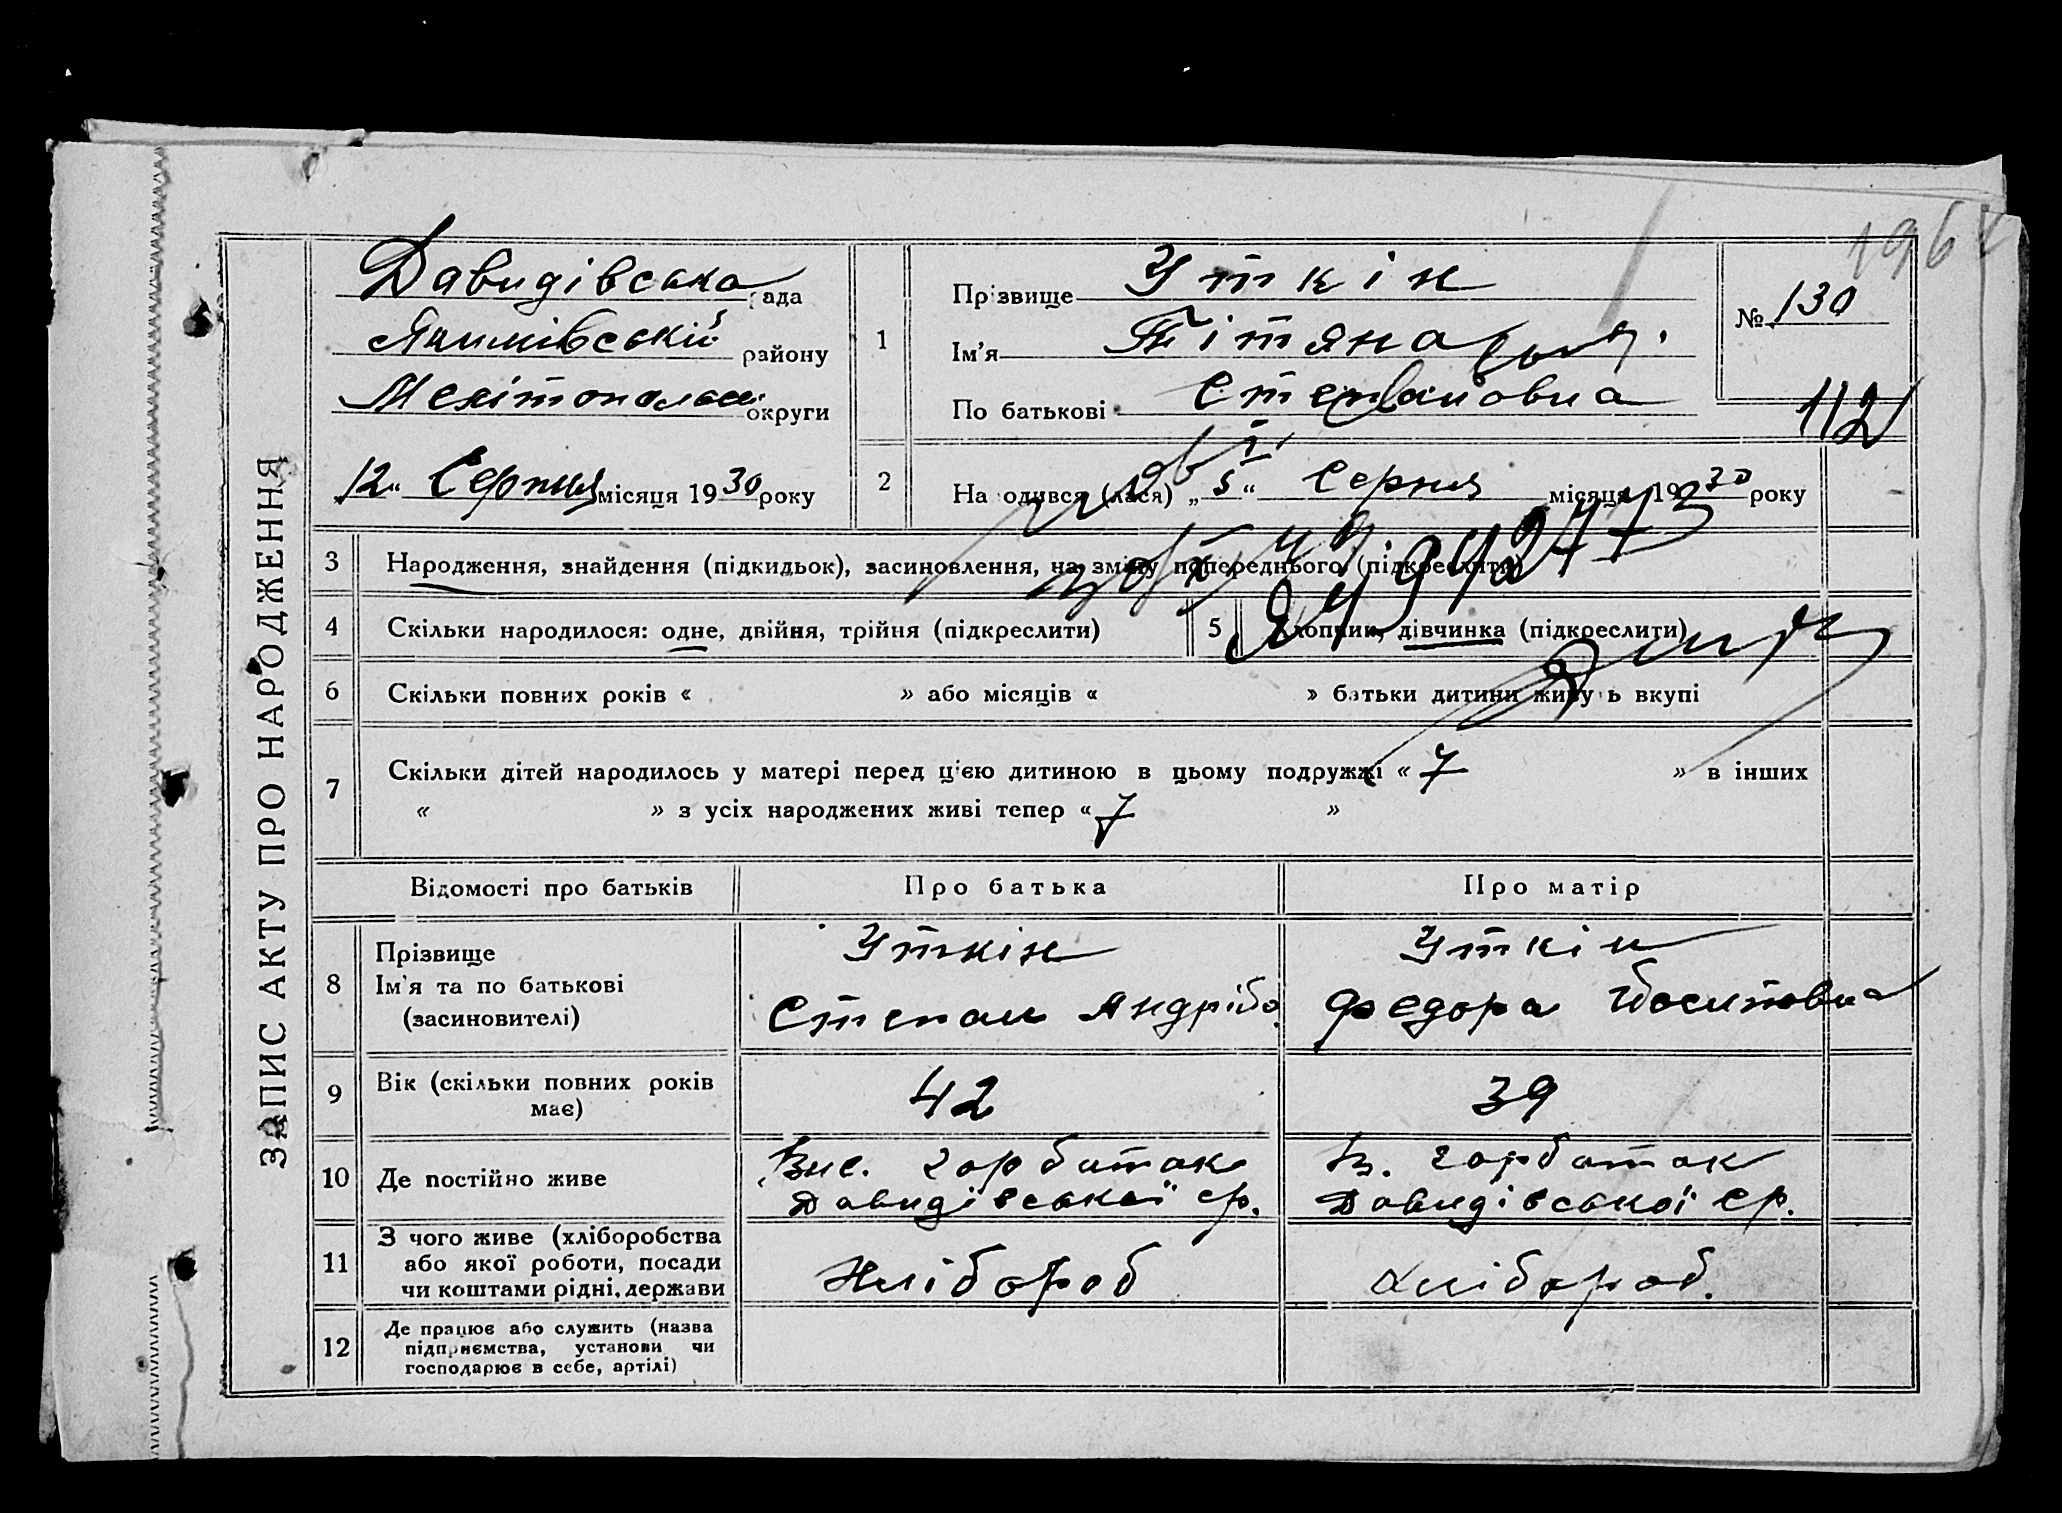 ЗАПИС АКТУ ПРО НАРОДЖЕННЯ
Давидівська рада
Якимівській району
Мелітопольсь округи
„12„ Серпня місяця 1930 року
1
Прізвище Уткін
Ім'я Тітяна
По батькові Степановна
№ 130
112
2
Народився (лася) „5“ Серпня місяця 1930 року
3 Народження, знайдення (підкидьок), засиновлення, на зміну попереднього (підкреслити)
4 Скільки народилося: одне, двійня, трійня (підкреслити)
5 Хлопчик, дівчинка (підкреслити)
6 Скільки повних років « » або місяців « » батьки дитини живуть вкупі
7 Скільки дітей народилось у матері перед цією дитиною в цьому подружжі « 7 » в інших
« » з усіх народжених живі тепер « 7 »
Відомості про батьків Про батька Про матір
8 Прізвище
Ім'я та по батькові
(засиновителі)
Уткін
Степан Андрійо.
Уткін
Федора
9 Вік (скільки повних років
має)
42
39
10 Де постійно живе
Вис. Горбатак
Давидівської ср.
В. Горбаток
Давидівської ср.
11 З чого живе (хліборобства
або якої роботи, посади
чи коштами рідні, держави
Хлібороб
Хлібороб.
12 Де працює або служить (назва
підприємства, установи чи
господарює в себе, артілі)